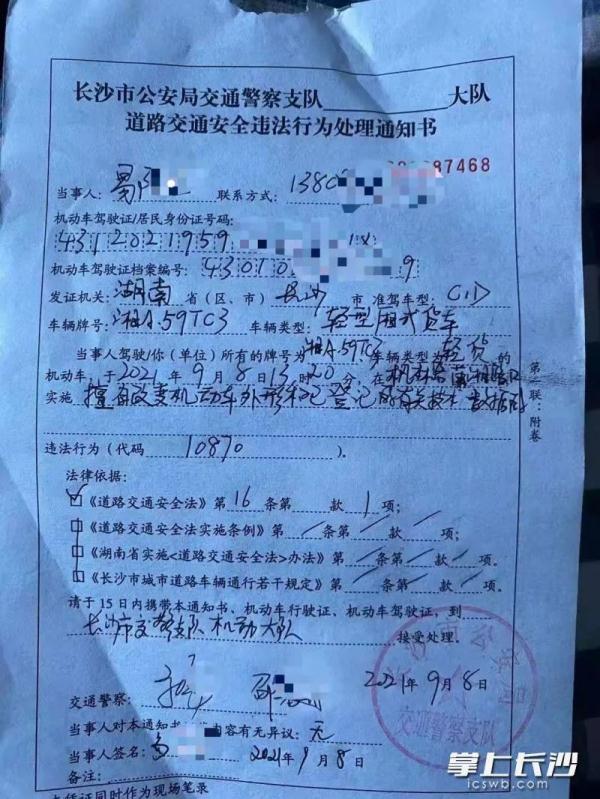 长沙市公安局交通警察支队 大队
道路交通安全违法行为处理通知书
87468
当事人: 联系方式: 1380
机动车驾驶证/居民身份证号码:
4312021959
机动车驾驶证档案编号: 43010 9
发证机关: 湖南 省(区、市) 长沙 市 准驾车型: C1D
车辆牌号: 湘A·59TC3 车辆类型: 轻型厢式货车
当事人驾驶/你(单位)所有的牌号为 湘A·59TC3 车辆类型为 轻货 的
机动车,于 2021 年 9 月 8 日 13 时 20 分,在
实施 擅自改变机动车外形和已登记的有关技术数据的
违法行为(代码 10870 )。
法律依据:
《道路交通安全法》第 16 条第 款 1 项;
《道路交通安全法实施条例》第 条第 款 项;
《湖南省实施<道路交通安全法>办法》第 条第 款 项;
《长沙市城市道路车辆通行若干规定》第 条第 款 项;
请于15日内携带本通知书、机动车行驶证、机动车驾驶证,到
长沙市交警支队机动大队 接受处理。
交通警察: 2021年9月8日
当事人对本通知书 内容有无异议: 无
当事人签名: 2021年9月8日
备注:
本凭证同时作为现场笔录
第一联:附卷
交通警察支队
掌上长沙
icswb.com